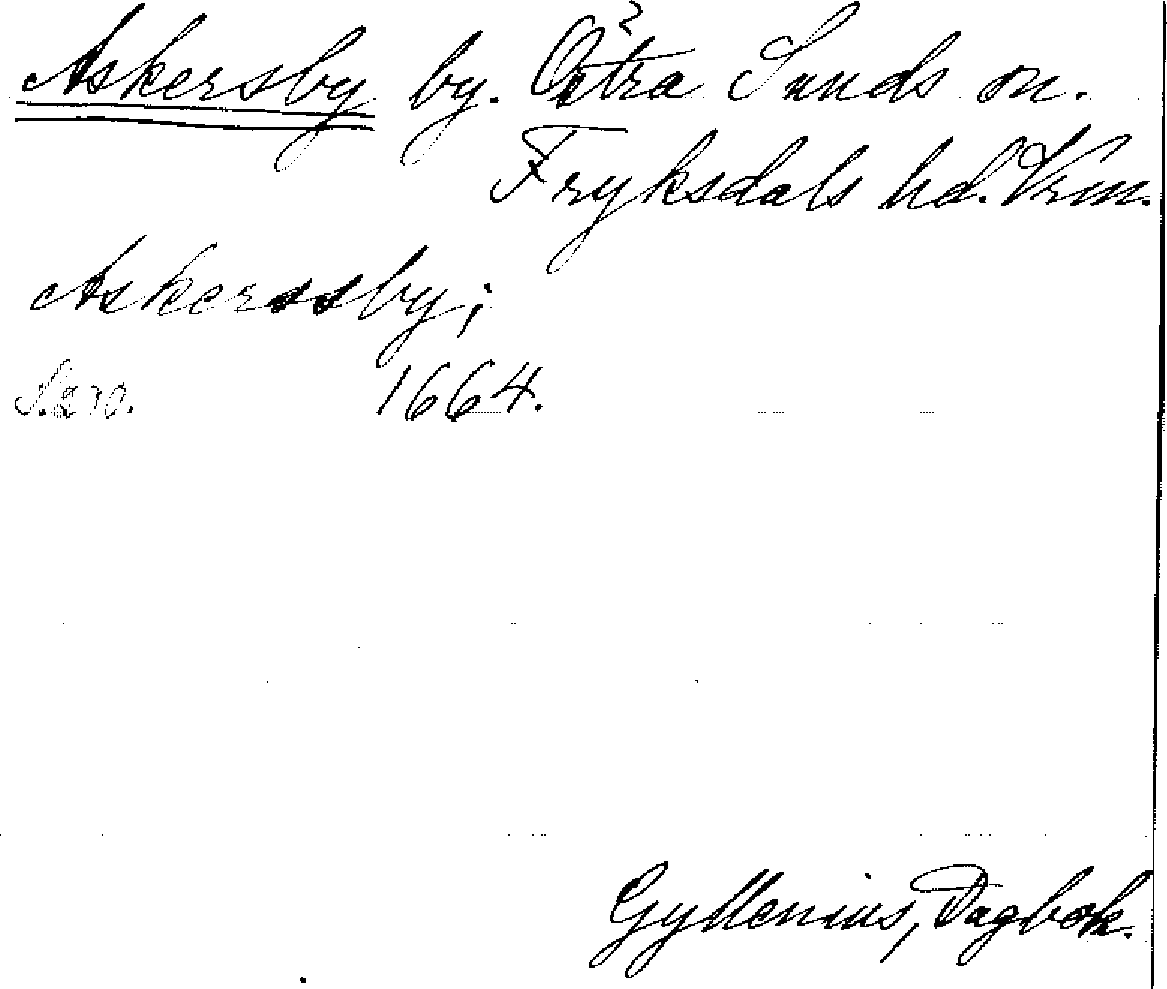 Askersby by. Östra Sunds sn.
Fryksdals hd. Vrm.
Askerssby;
S. 270. 1664.
Gyllenius, Dagbok.